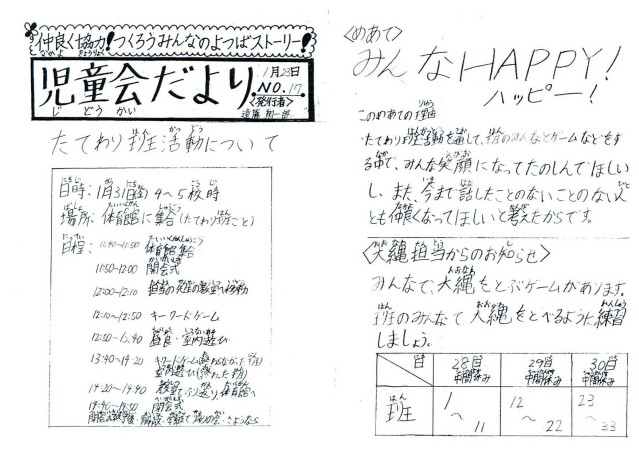 仲良く協力!つくろうみんなのよつばストーリー!
なかよ きょうりょく
児童会だより
じ どう かい
1月23日
NO.17
<発行者>
たてわり班活動について
はん かつ どう
日時:1月31日(金)4〜5校時
場所:体育館に集合(たてわり班ごと)
日程:11:40〜11:50 体育館集合
11:50〜12:00 開会式
12:00〜12:10 担当の先生の教室へ移動
12:10〜12:50 キーワードゲーム
12:50〜13:40 昼食・室内遊び
13:40〜14:20 キーワードゲーム(終わらなかった班)
室内遊び(終わった班)
14:20〜14:40 教室でふり返り、体育館へ
14:40〜14:50 閉会式
<めあて>
みんなHAPPY!
ハッピー!
このめあての理由
たてわり班活動を通して、班のみんなとゲームなどをす
る中で、みんな笑顔になってたのしんでほしい
し、また、今まで話したことのないことのない人
とも仲良くなってほしいと考えたからです。
<大縄担当からのお知らせ>
みんなで、大縄をとぶゲームがあります。
班のみんなで大縄をとべるように練習
しましょう。
日 28日 29日 30日
中間休み 中間休み 中間休み
班 1〜11 12〜22 23〜33